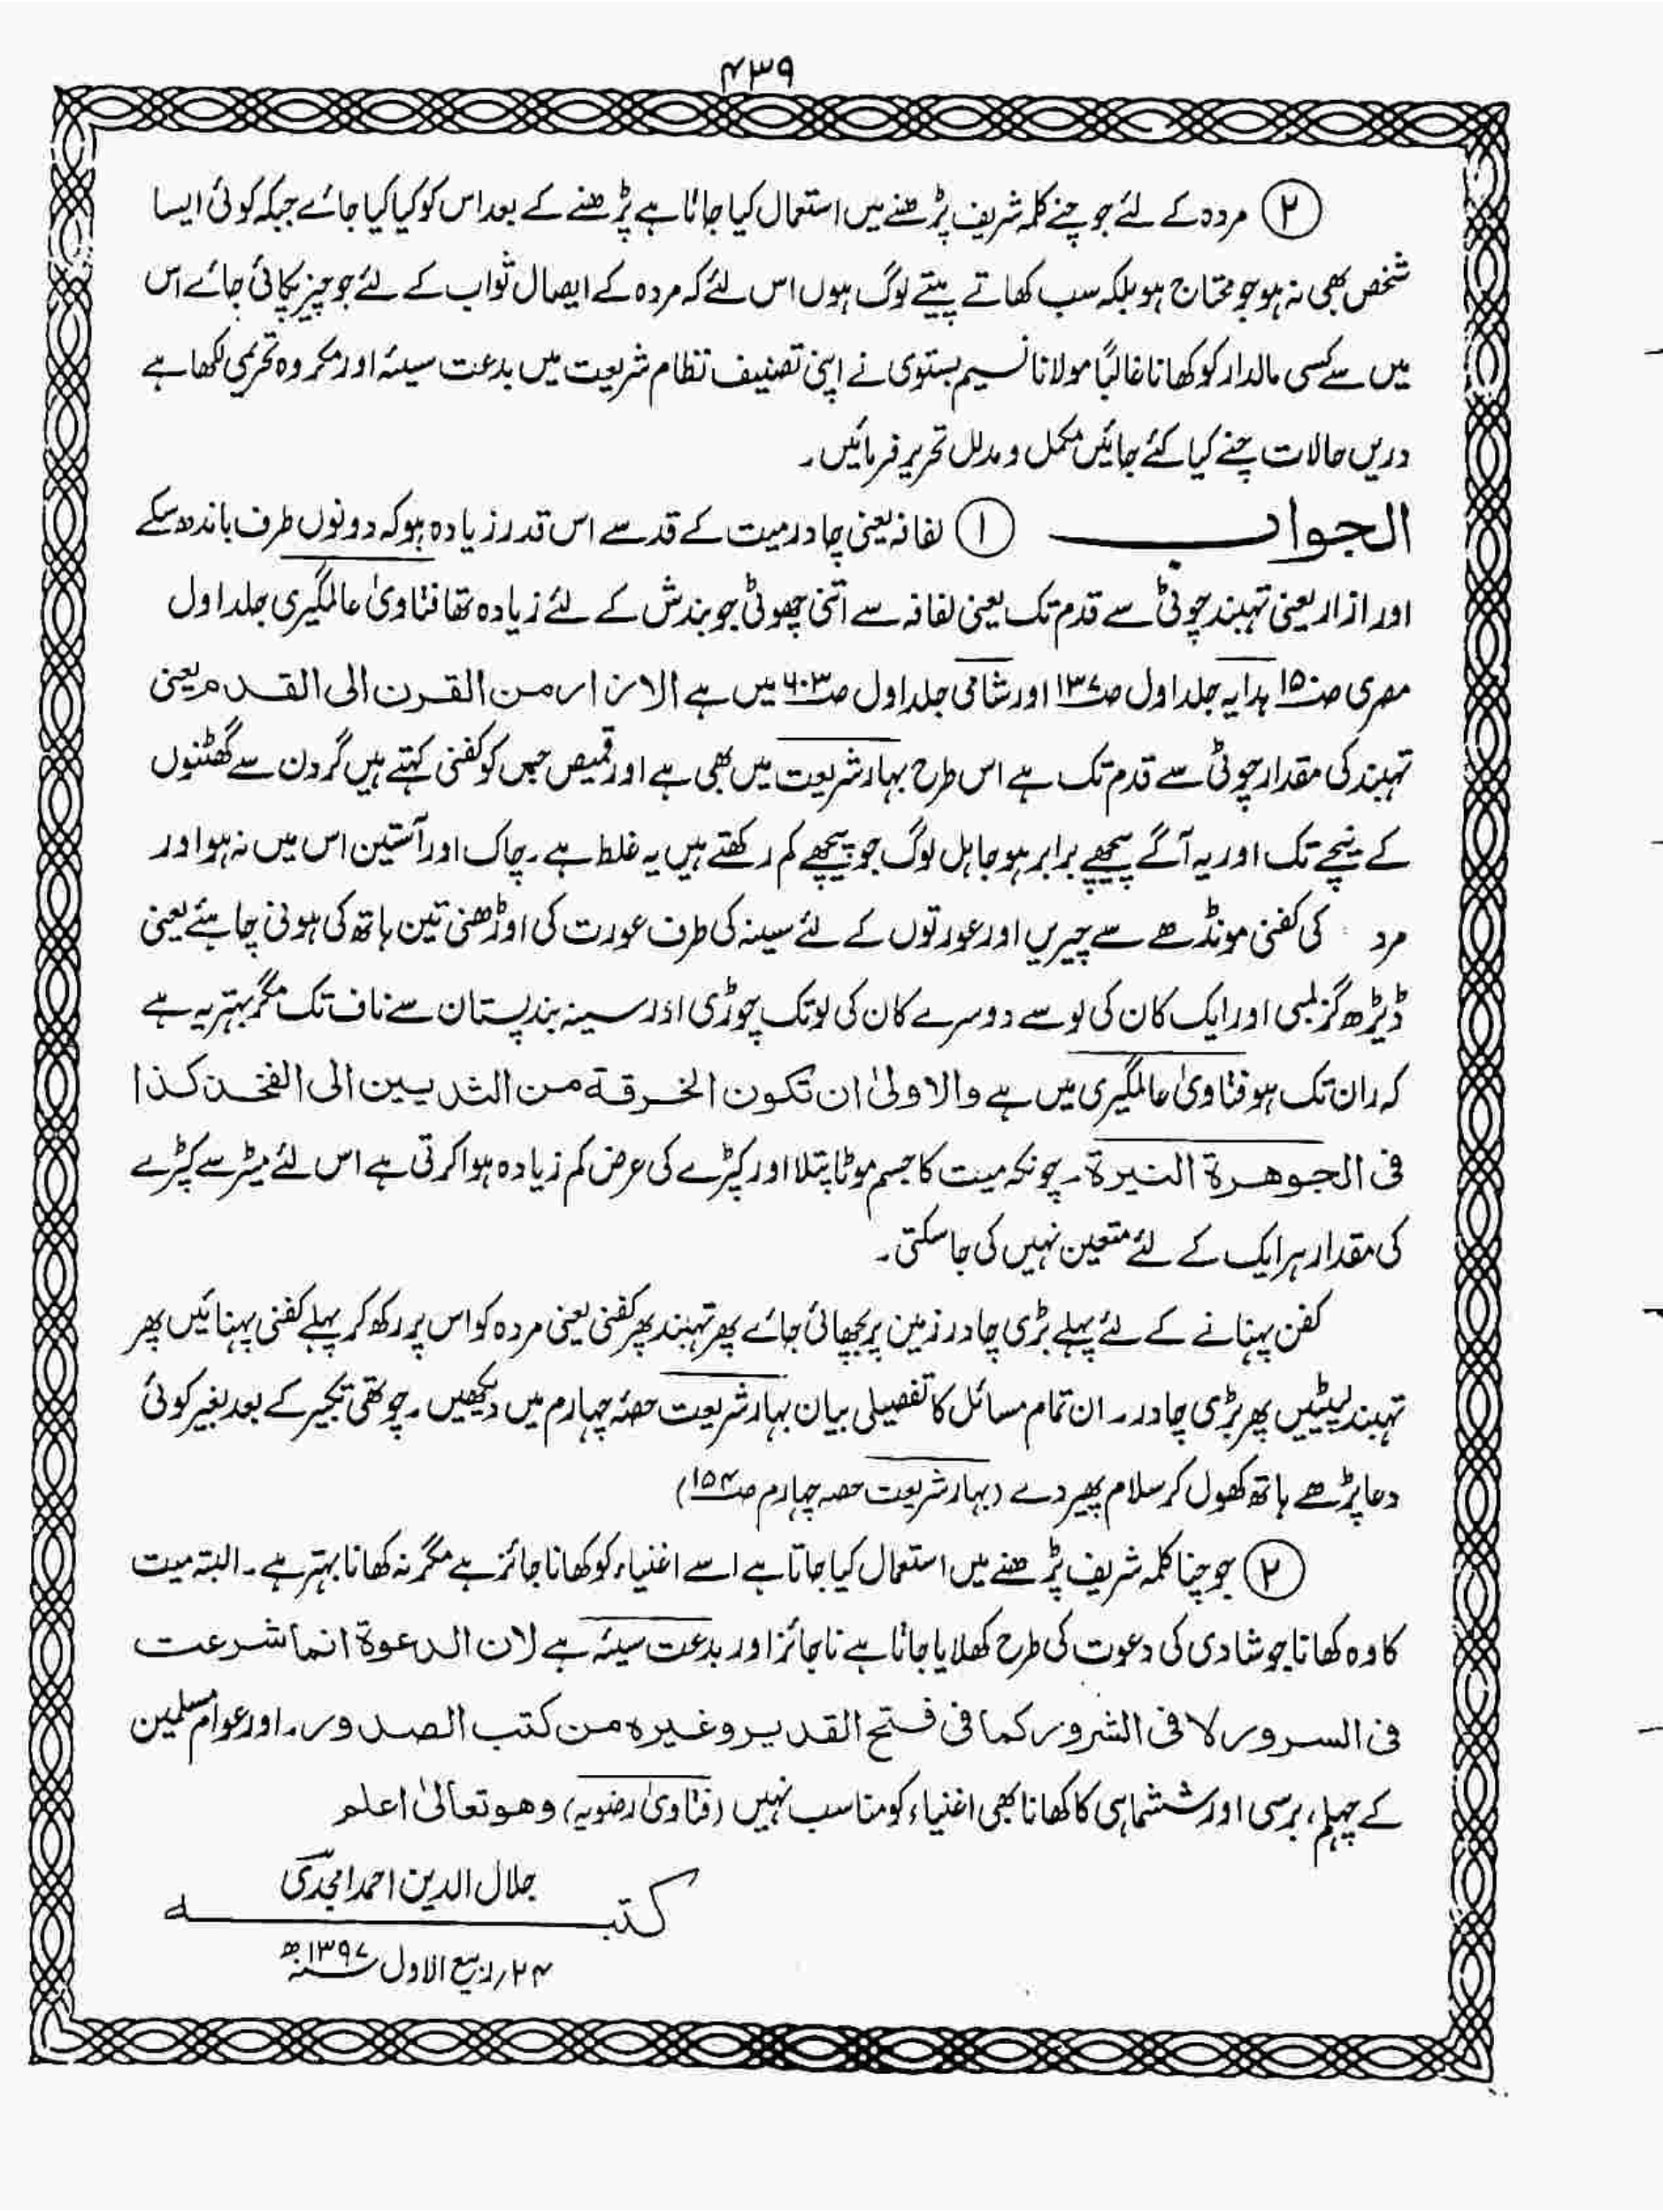 ۴۳۹
② مردہ کے لئے جو چنے کلمہ شریف پڑھنے میں استعمال کیا جاتا ہے پڑھنے کے بعد اس کو کیا کیا جائے جبکہ کوئی ایسا
شخص بھی نہ ہو جو محتاج ہو بلکہ سب کھاتے پیتے لوگ ہوں اس لئے کہ مردہ کے ایصال ثواب کے لئے جو چیز پکائی جائے اس
میں سے کسی مالدار کو کھانا غالبًا مولانا نسیم بستوی نے اپنی تصنیف نظام شریعت میں بدعت سیئہ اور مکروہ تحریمی لکھا ہے
دریں حالات چنے کیا کئے جائیں مکمل و مدلل تحریر فرمائیں۔
الجواب ① لفافہ یعنی چادر میت کے قد سے اس قدر زیادہ ہو کہ دونوں طرف باندھ سکے
اور ازار یعنی تہبند چوٹی سے قدم تک یعنی لفافہ سے اتنی چھوٹی جو بندش کے لئے زیادہ تھا فتاویٰ عالمگیری جلد اول
مصری صـ۱۵۰ ہدایہ جلد اول صـ۱۳۷ اور شامی جلد اول صـ۶۰۳ میں ہے الازار من القرن الی القدم یعنی
تہبند کی مقدار چوٹی سے قدم تک ہے اس طرح بہار شریعت میں بھی ہے اور قمیص جس کو کفنی کہتے ہیں گردن سے گھٹنوں
کے نیچے تک اور یہ آگے پیچھے برابر ہو جاہل لوگ جو پیچھے کم رکھتے ہیں یہ غلط ہے۔ چاک اور آستین اس میں نہ ہو اور
مرد کی کفنی مونڈھے سے چیریں اور عورتوں کے لئے سینہ کی طرف عورت کی اوڑھنی تین ہاتھ کی ہونی چاہئے یعنی
ڈیڑھ گز لمبی اور ایک کان کی لو سے دوسرے کان کی لو تک چوڑی اور سینہ بند پستان سے ناف تک مگر بہتر یہ ہے
کہ ران تک ہو فتاویٰ عالمگیری میں ہے والاولیٰ ان تکون الخرقة من الثدیین الی الفخذ کذا
فی الجوهرة النیرة۔ چونکہ میت کا جسم موٹا پتلا اور کپڑے کی عرض کم زیادہ ہوا کرتی ہے اس لئے میٹر سے کپڑے
کی مقدار ہر ایک کے لئے متعین نہیں کی جا سکتی۔
کفن پہنانے کے لئے پہلے بڑی چادر زمین پر بچھائی جائے پھر تہبند پھر کفنی یعنی مردہ کو اس پر رکھ کر پہلے کفنی پہنائیں پھر
تہبند لپیٹیں پھر بڑی چادر۔ ان تمام مسائل کا تفصیلی بیان بہار شریعت حصۂ چہارم میں دیکھیں۔ چوتھی تکبیر کے بعد بغیر کوئی
دعا پڑھے ہاتھ کھول کر سلام پھیر دے (بہار شریعت حصہ چہارم صـ۱۵۴)
② جو چنا کلمہ شریف پڑھنے میں استعمال کیا جاتا ہے اسے اغنیاء کو کھانا جائز ہے مگر نہ کھانا بہتر ہے۔ البتہ میت
کا وہ کھانا جو شادی کی دعوت کی طرح کھلایا جاتا ہے ناجائز اور بدعت سیئہ ہے لان الدعوة انما شرعت
فی السرور لا فی الشرور کما فی فتح القدیر وغیرہ من کتب الصدور۔ اور عوام مسلمین
کے چہلم، برسی اور ششماہی کا کھانا بھی اغنیاء کو مناسب نہیں (فتاویٰ رضویہ) وهو تعالیٰ اعلم
جلال الدین احمد امجدی
کتبہ
۲۴؍ ربیع الاول سنہ ۱۳۹۷ھ